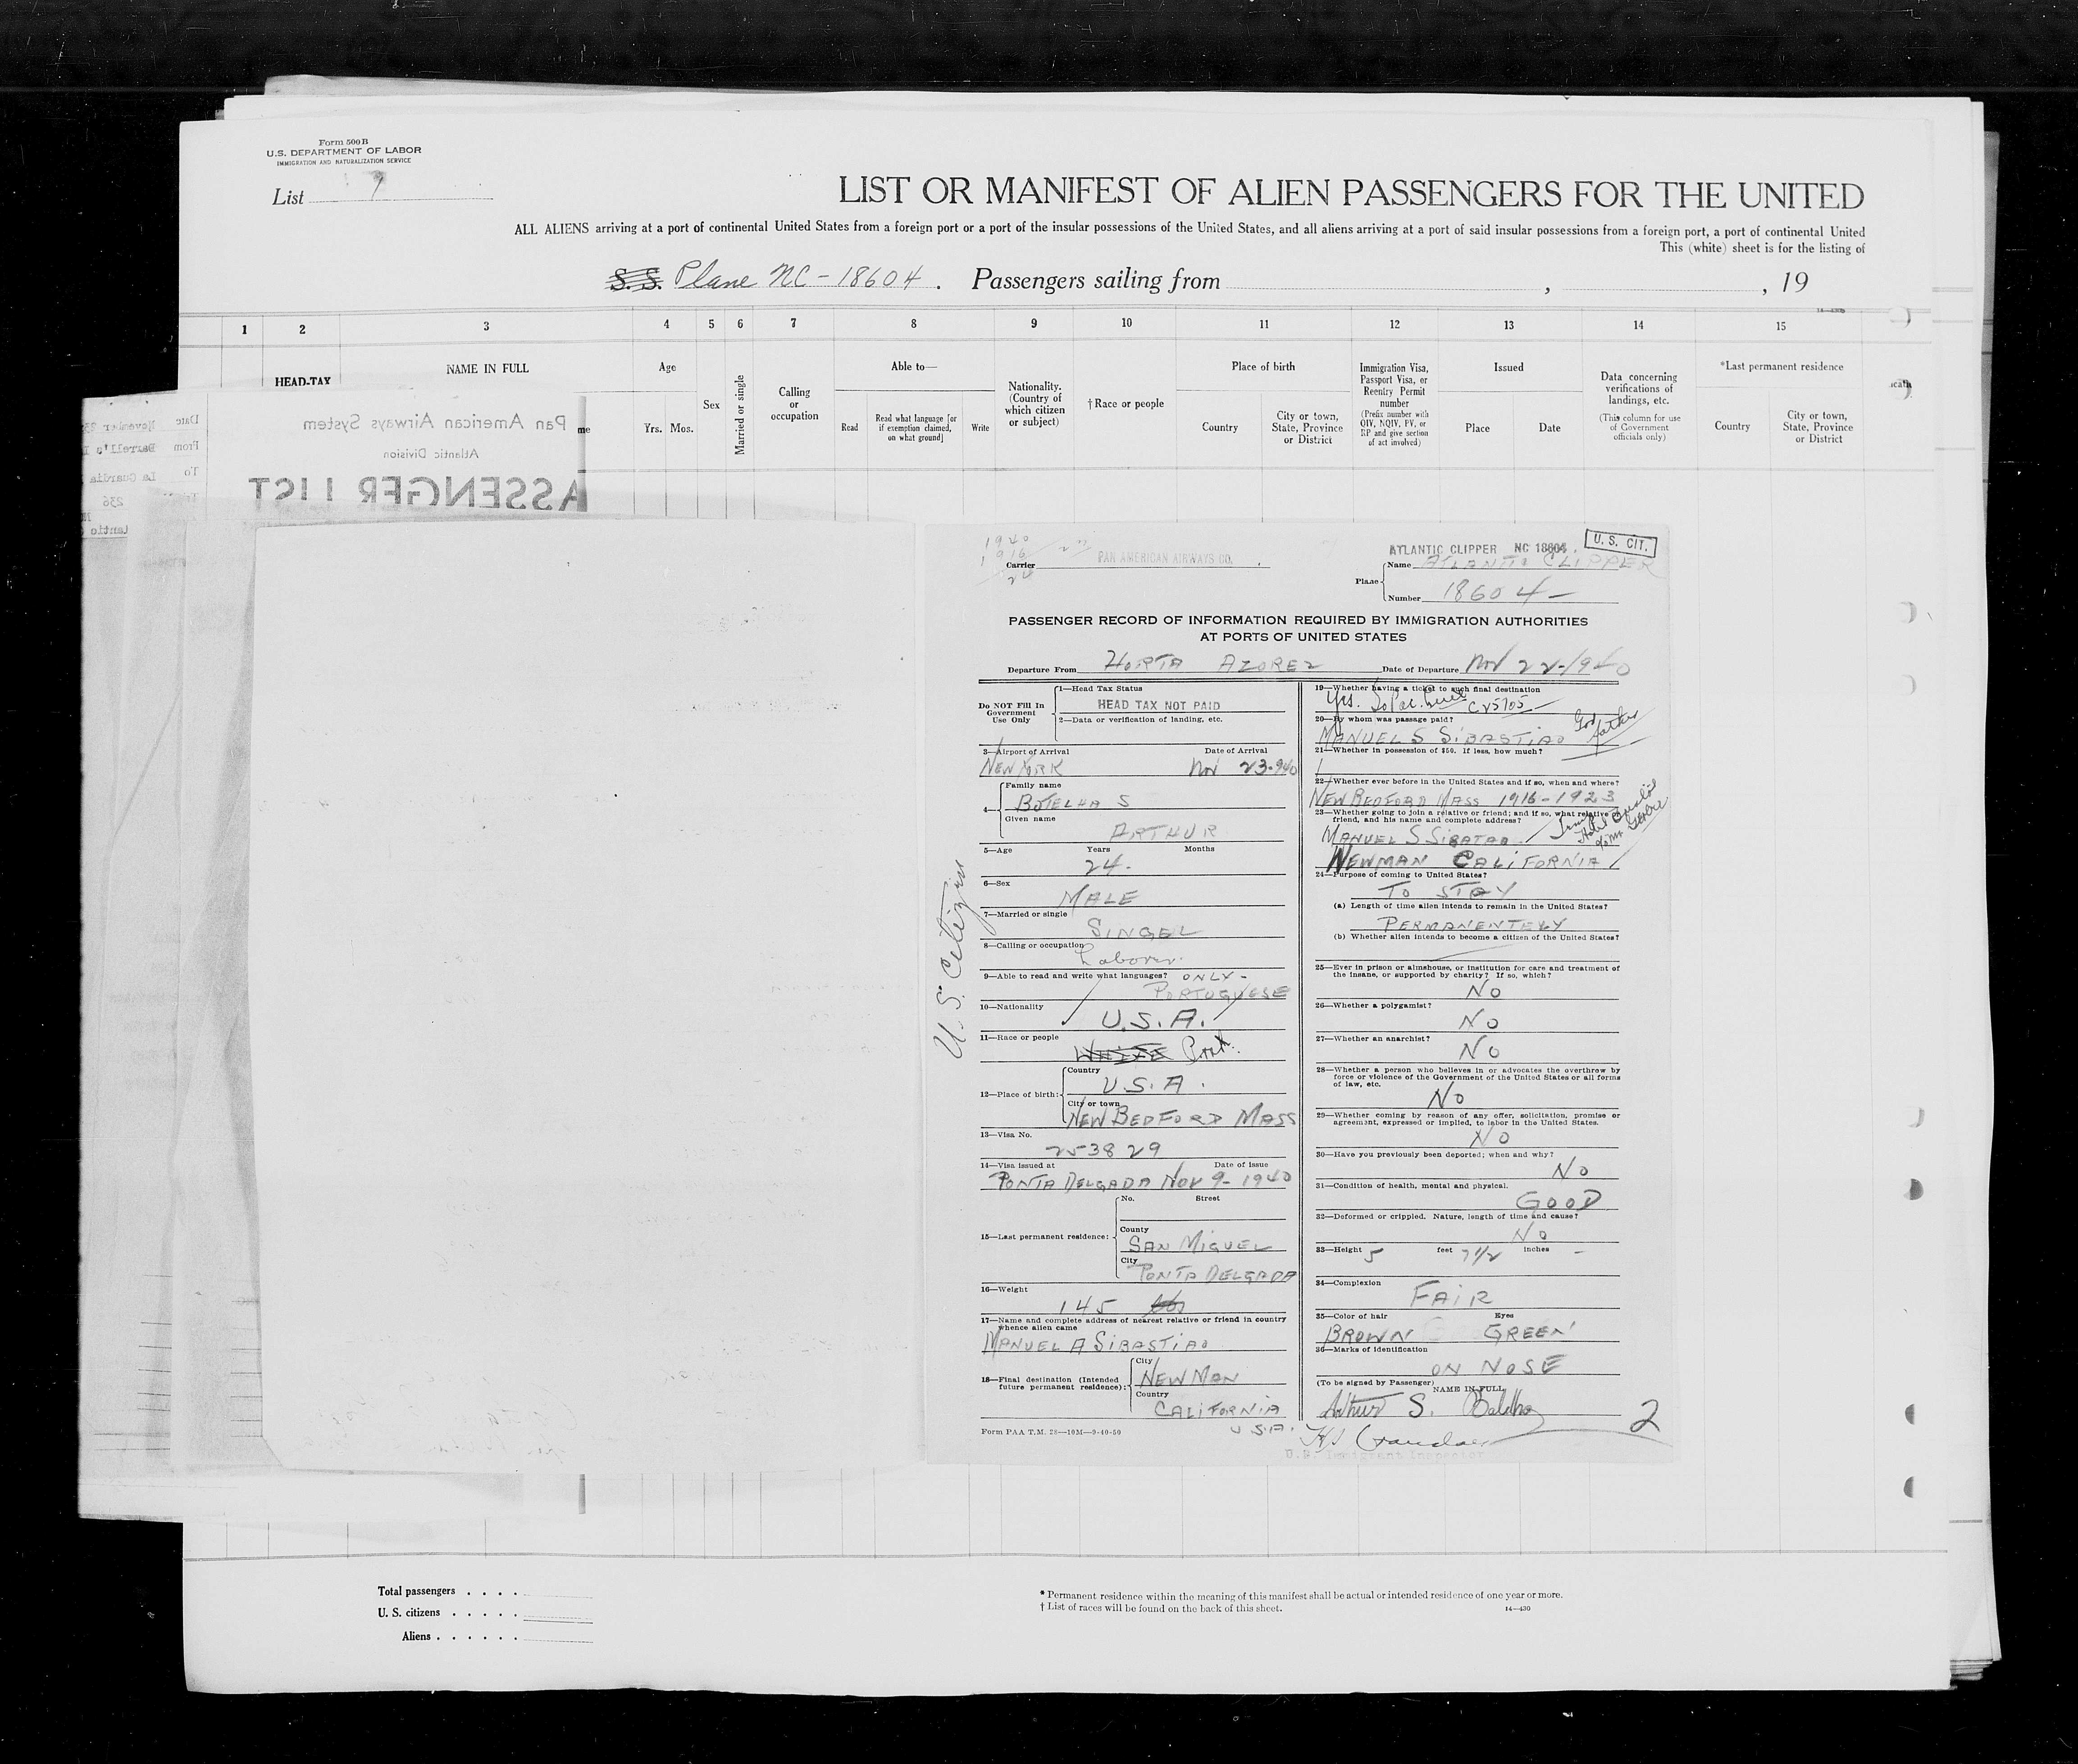 Form 500 B
U.S. DEPARTMENT OF LABOR
IMMIGRATION AND NATURALIZATION SERVICE
List 1
LIST OR MANIFEST OF ALIEN PASSENGERS FOR THE UNITED
ALL ALIENS arriving at a port of continental United States from a foreign port or a port of the insular possessions of the United States, and all aliens arriving at a port of said insular possessions from a foreign port, a port of continental United
This (white) sheet is for the listing of
S. S. Plane NC-18604. Passengers sailing from , , 19
1 2 3 4 5 6 7 8 9 10 11 12 13 14 15
HEAD-TAX
NAME IN FULL
Age
Yrs. Mos.
Sex
Married or single
Calling
or
occupation
Able to—
Read
Read what language [or
if exemption claimed,
on what ground]
Write
Nationality.
(Country of
which citizen
or subject)
†Race or people
Place of birth
Country
City or town,
State, Province
or District
Immigration Visa,
Passport Visa, or
Reentry Permit
number
(Prefix number with
QIV, NQIV, PV, or
RP and give section
of act involved)
Issued
Place
Date
Data concerning
verifications of
landings, etc.
(This column for use
of Government
officials only)
*Last permanent residence
Country
City or town,
State, Province
or District
Pan American Airways System
Atlantic Division
ASSENGER LIST
Date November 23
From Darrell's I
To La Guardia
236
1940
1916
24
Carrier PAN AMERICAN AIRWAYS CO.
ATLANTIC CLIPPER NC 18604
U. S. CIT.
Plane Name ATLANTIC CLIPPER
Number 18604-
PASSENGER RECORD OF INFORMATION REQUIRED BY IMMIGRATION AUTHORITIES
AT PORTS OF UNITED STATES
Departure From HORTA AZOREZ Date of Departure Nov 22-1940
Do NOT Fill In
Government
Use Only
1—Head Tax Status
HEAD TAX NOT PAID
2—Data or verification of landing, etc.
3—Airport of Arrival Date of Arrival
NEW YORK Nov 23-940
4— Family name
BOTELHA S
Given name
ARTHUR
5—Age Years Months
24.
6—Sex
MALE
7—Married or single
SINGEL
8—Calling or occupation
Laborer.
9—Able to read and write what languages? ONLY-
PORTUGUESE
10—Nationality
U.S.A.
11—Race or people
WHITE Port.
12—Place of birth: Country
U.S.A.
City or town
NEW BEDFORD MASS
13—Visa No.
253829
14—Visa issued at Date of issue
PONTA DELGADA NOV 9-1940
15—Last permanent residence: No. Street
County
SAN MIGUEL
City
PONTA DELGADA
16—Weight
145 lbs
17—Name and complete address of nearest relative or friend in country
whence alien came
MANUEL A SIBASTIAO
18—Final destination (Intended
future permanent residence): City
NEWMAN
Country
CALIFORNIA
U.S.A.
Form PAA T.M. 28—10M—9-40-50
U.S. Citizen
19—Whether having a ticket to such final destination
Yes.
20—By whom was passage paid?
MANUEL S SIBASTIAO God father
21—Whether in possession of $50. If less, how much?
22—Whether ever before in the United States and if so, when and where?
NEW BEDFORD MASS 1916-1923
23—Whether going to join a relative or friend; and if so, what relative or
friend, and his name and complete address?
MANUEL S SIBATAO
NEWMAN CALIFORNIA
24—Purpose of coming to United States?
TO STAY
(a) Length of time alien intends to remain in the United States?
PERMANENTELY
(b) Whether alien intends to become a citizen of the United States?
25—Ever in prison or almshouse, or institution for care and treatment of
the insane, or supported by charity? If so, which?
NO
26—Whether a polygamist?
NO
27—Whether an anarchist?
NO
28—Whether a person who believes in or advocates the overthrow by
force or violence of the Government of the United States or all forms
of law, etc.
NO
29—Whether coming by reason of any offer, solicitation, promise or
agreement, expressed or implied, to labor in the United States.
NO
30—Have you previously been deported; when and why?
NO
31—Condition of health, mental and physical.
GOOD
32—Deformed or crippled. Nature, length of time and cause?
NO
33—Height 5 feet 7 1/2 inches -
34—Complexion
FAIR
35—Color of hair Eyes
BROWN GREEN
36—Marks of identification
ON NOSE
(To be signed by Passenger)
NAME IN FULL
Arthur S. Botelho
2
U.S. Immigrant Inspector
Total passengers . . . .
U. S. citizens . . . . .
Aliens . . . . . .
* Permanent residence within the meaning of this manifest shall be actual or intended residence of one year or more.
† List of races will be found on the back of this sheet.
14—430